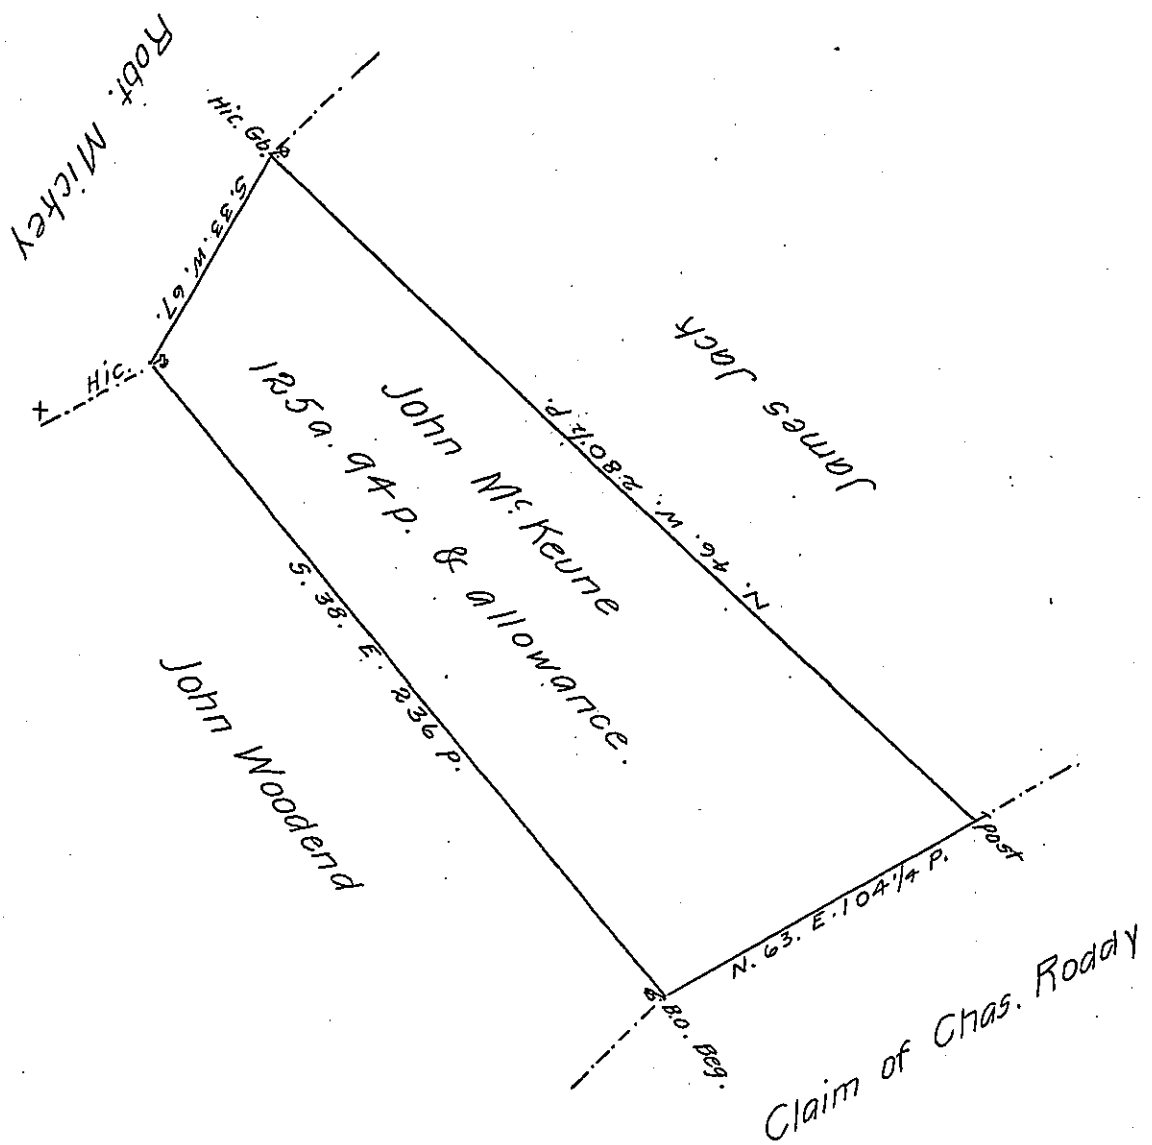 Robt. Mickey
Hic. Gb.
S. 33. W. 67.
Hic.
James Jack
N. 46. W. 280 1/2 P.
John McKeune
125 a. 94 p. & allowance.
S. 38. E. 236 P.
John Woodend
post
N. 63. E. 104 1/4 P.
B.O. Beg.
Claim of Chas. Roddy